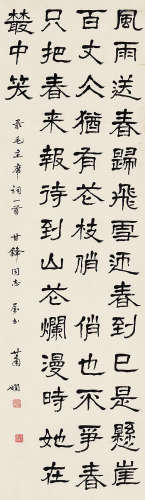 風雨送春歸飛雪迎春到已是懸崖
百丈仌猶有花枝俏俏也不爭春
只把春来報待到山花爛漫時她在
叢中笑
录毛主席詞一首 甘鋒同志 属书 蕭嫻